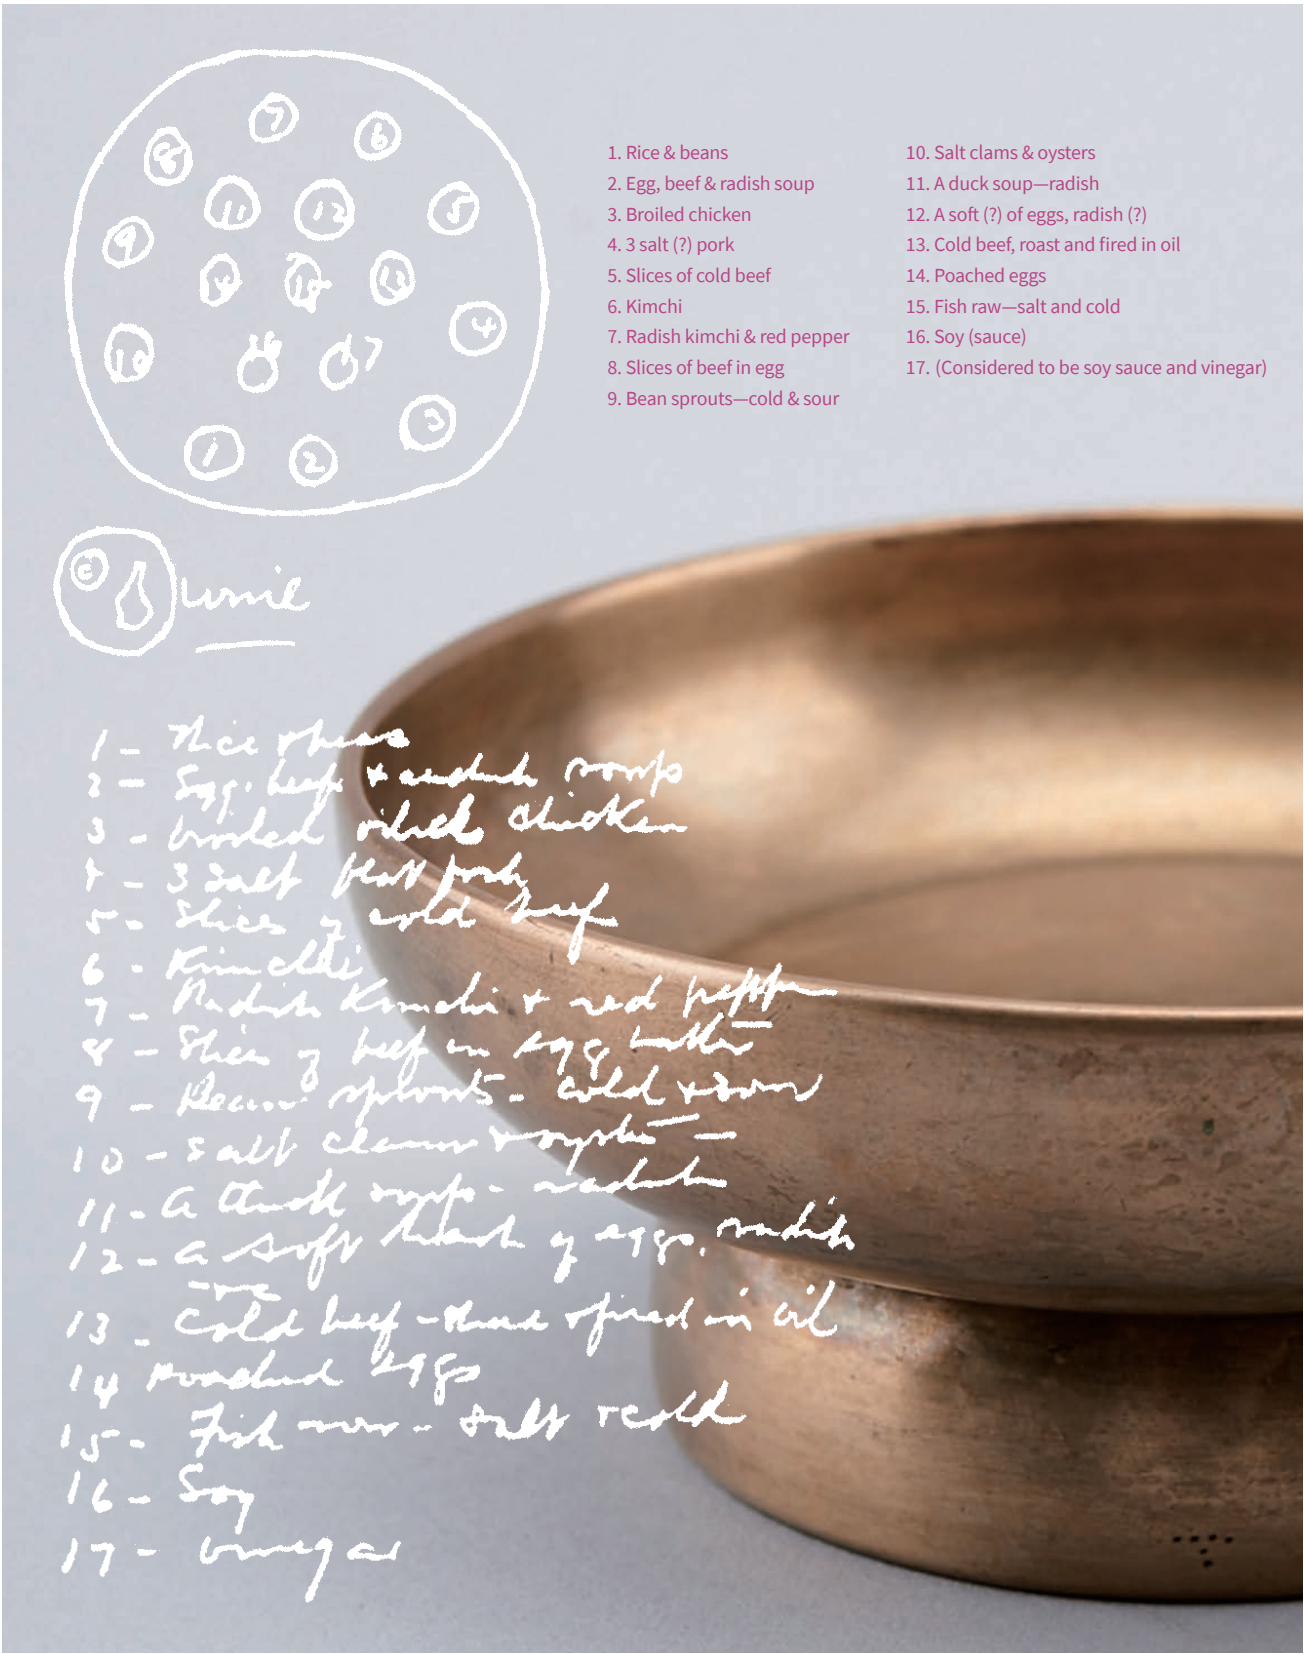 7
6
8
11
12
5
9
14
15
13
4
10
16
17
3
1
2
1. Rice & beans
2. Egg, beef & radish soup
3. Broiled chicken
4. 3 salt (?) pork
5. Slices of cold beef
6. Kimchi
7. Radish kimchi & red pepper
8. Slices of beef in egg
9. Bean sprouts—cold & sour
10. Salt clams & oysters
11. A duck soup—radish
12. A soft (?) of eggs, radish (?)
13. Cold beef, roast and fired in oil
14. Poached eggs
15. Fish raw—salt and cold
16. Soy (sauce)
17. (Considered to be soy sauce and vinegar)
c
1 - Rice
2 - Egg, beef + radish soup
3 - broiled chicken
4 - 3 salt pork
5 - Slices of cold beef
6 - Kimchi
7 - Radish Kimchi + red pepper
8 - Slices of beef in egg batter
9 - Bean sprouts - cold + sour
10 - Salt clams + oysters -
11 - a soup - radish
12 - a soft of eggs, radish
13 - Cold beef - fired in oil
14 Poached eggs
15 - Fish raw - salt + cold
16 - Soy
17 - vinegar